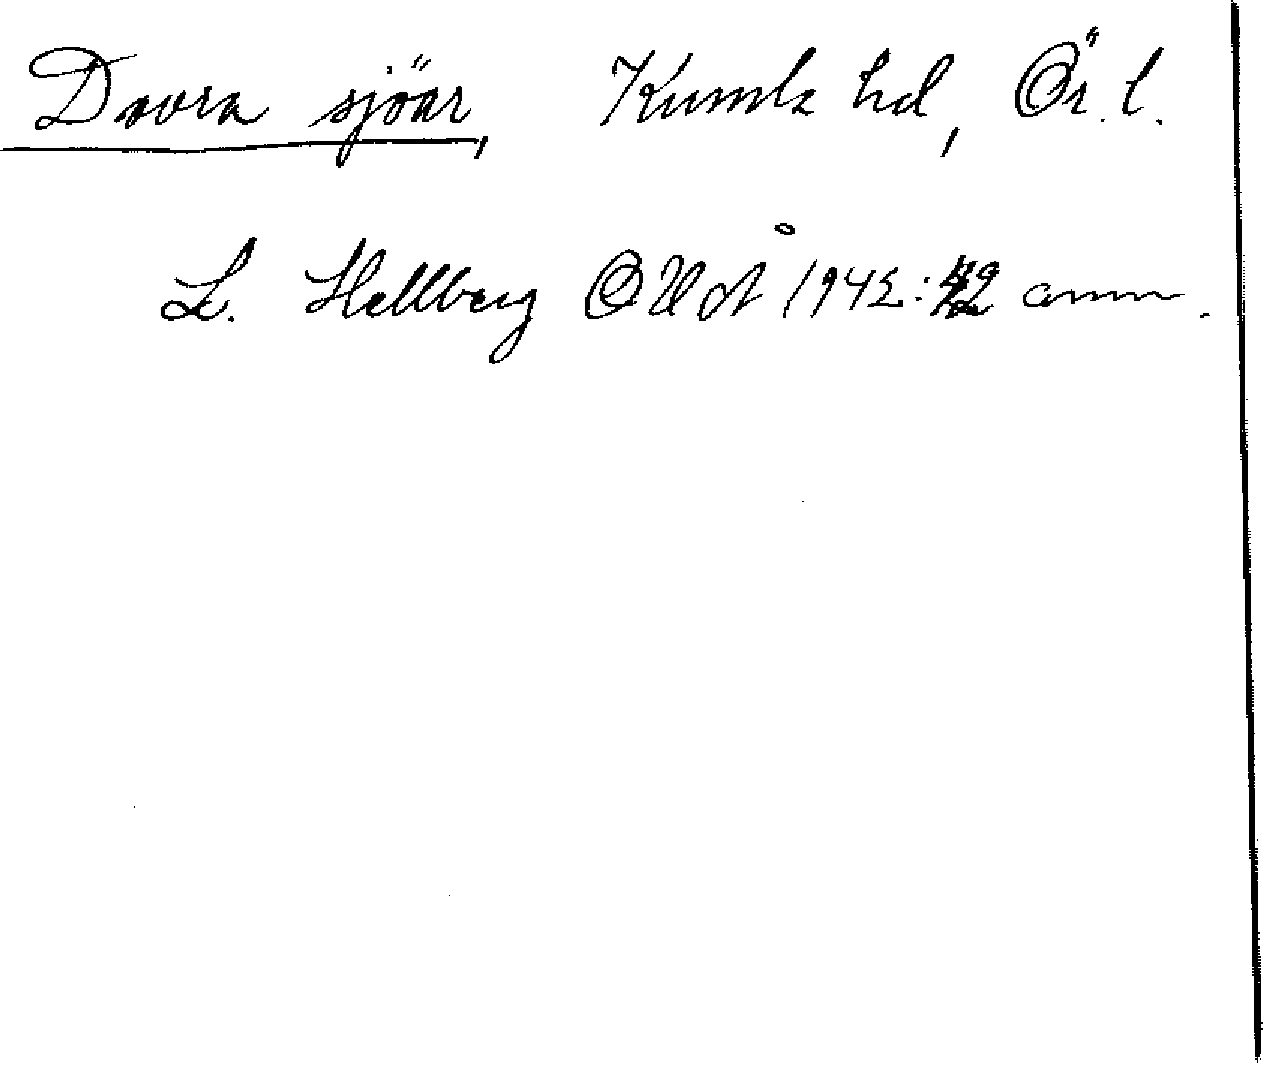 Dovra sjöar, Kumla hd, Ör. l.
L. Hellberg OUÅ 1942: 42 anm.